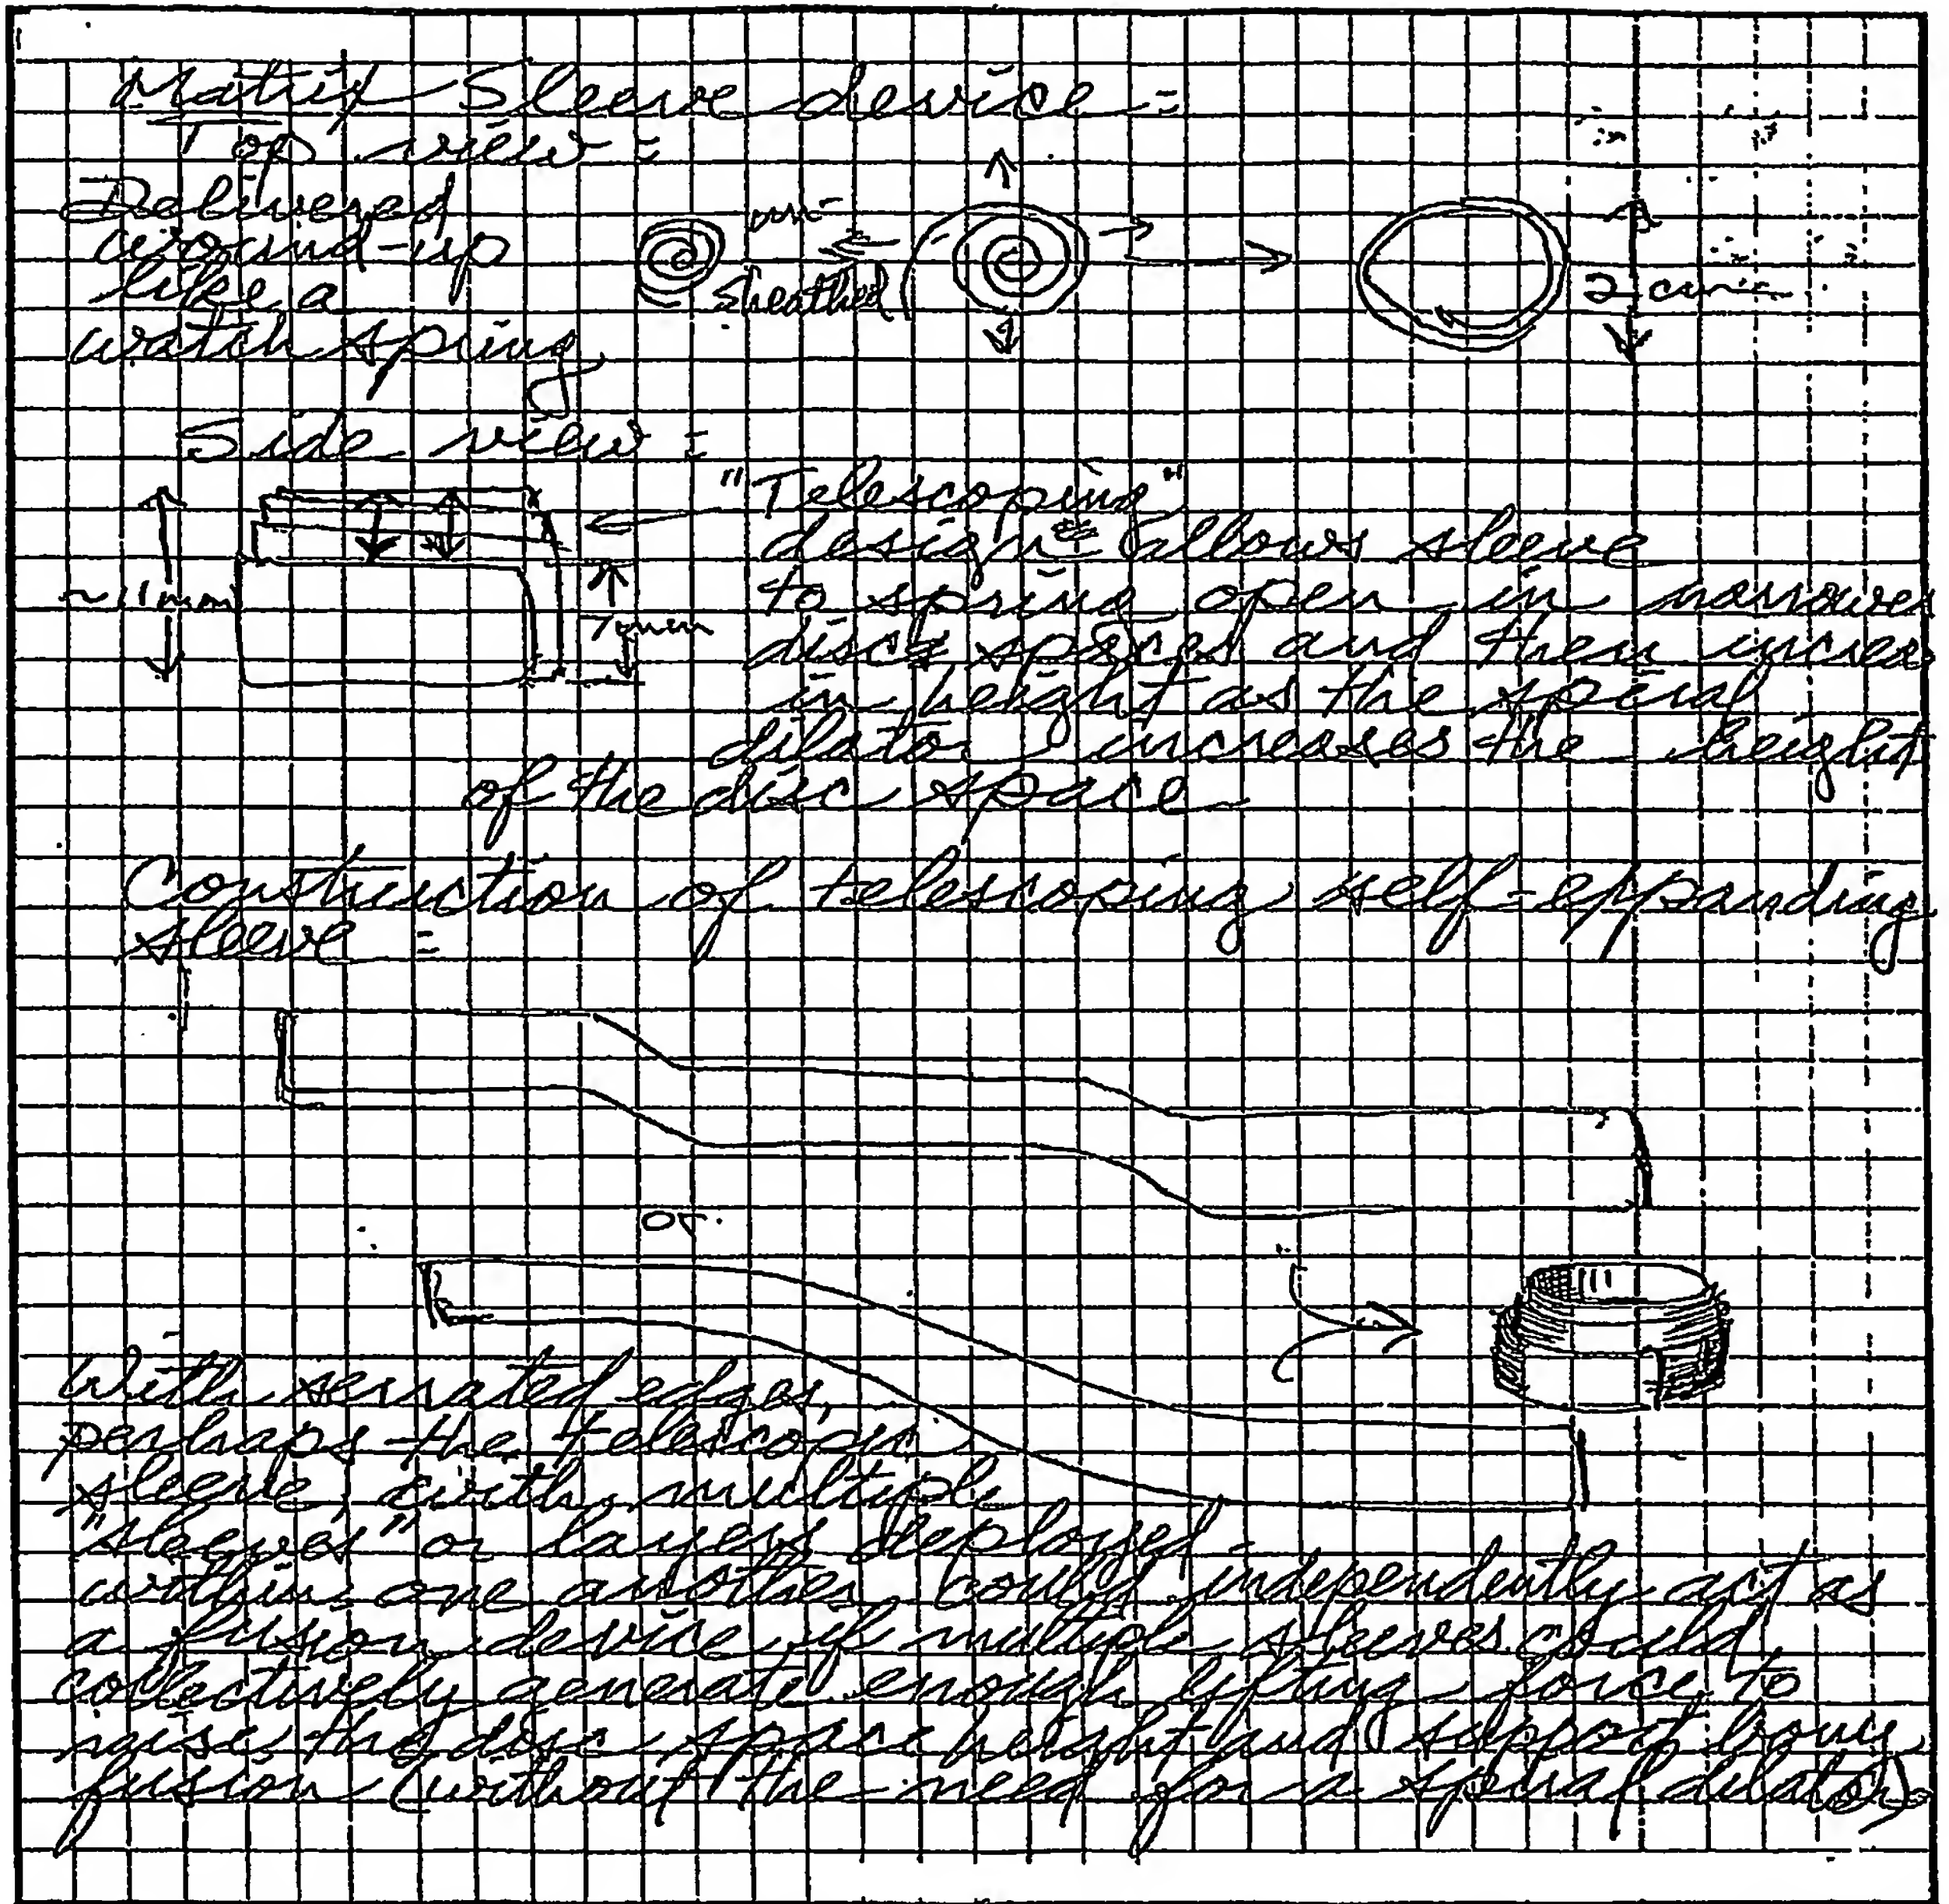 Matrix Sleeve device =
Top view =
Delivered
wound-up
like a
watch spring
un-
sheathed
2 cm
Side view =
~11mm
7mm
"Telescoping"
design allows sleeve
to spring open in narrower
disc spaces and then increa
in height as the spiral
dilator increases the height
of the disc space
Construction of telescoping self-expanding
sleeve =
or
With serrated edges,
perhaps the telescopic
sleeve, with multiple
"sleeves" or layers deployed
within one another, could independently act as
a fusion device if multiple sleeves could
collectively generate enough lifting force to
raise the disc space height and support bony
fusion (without the need for a spiral dilator).